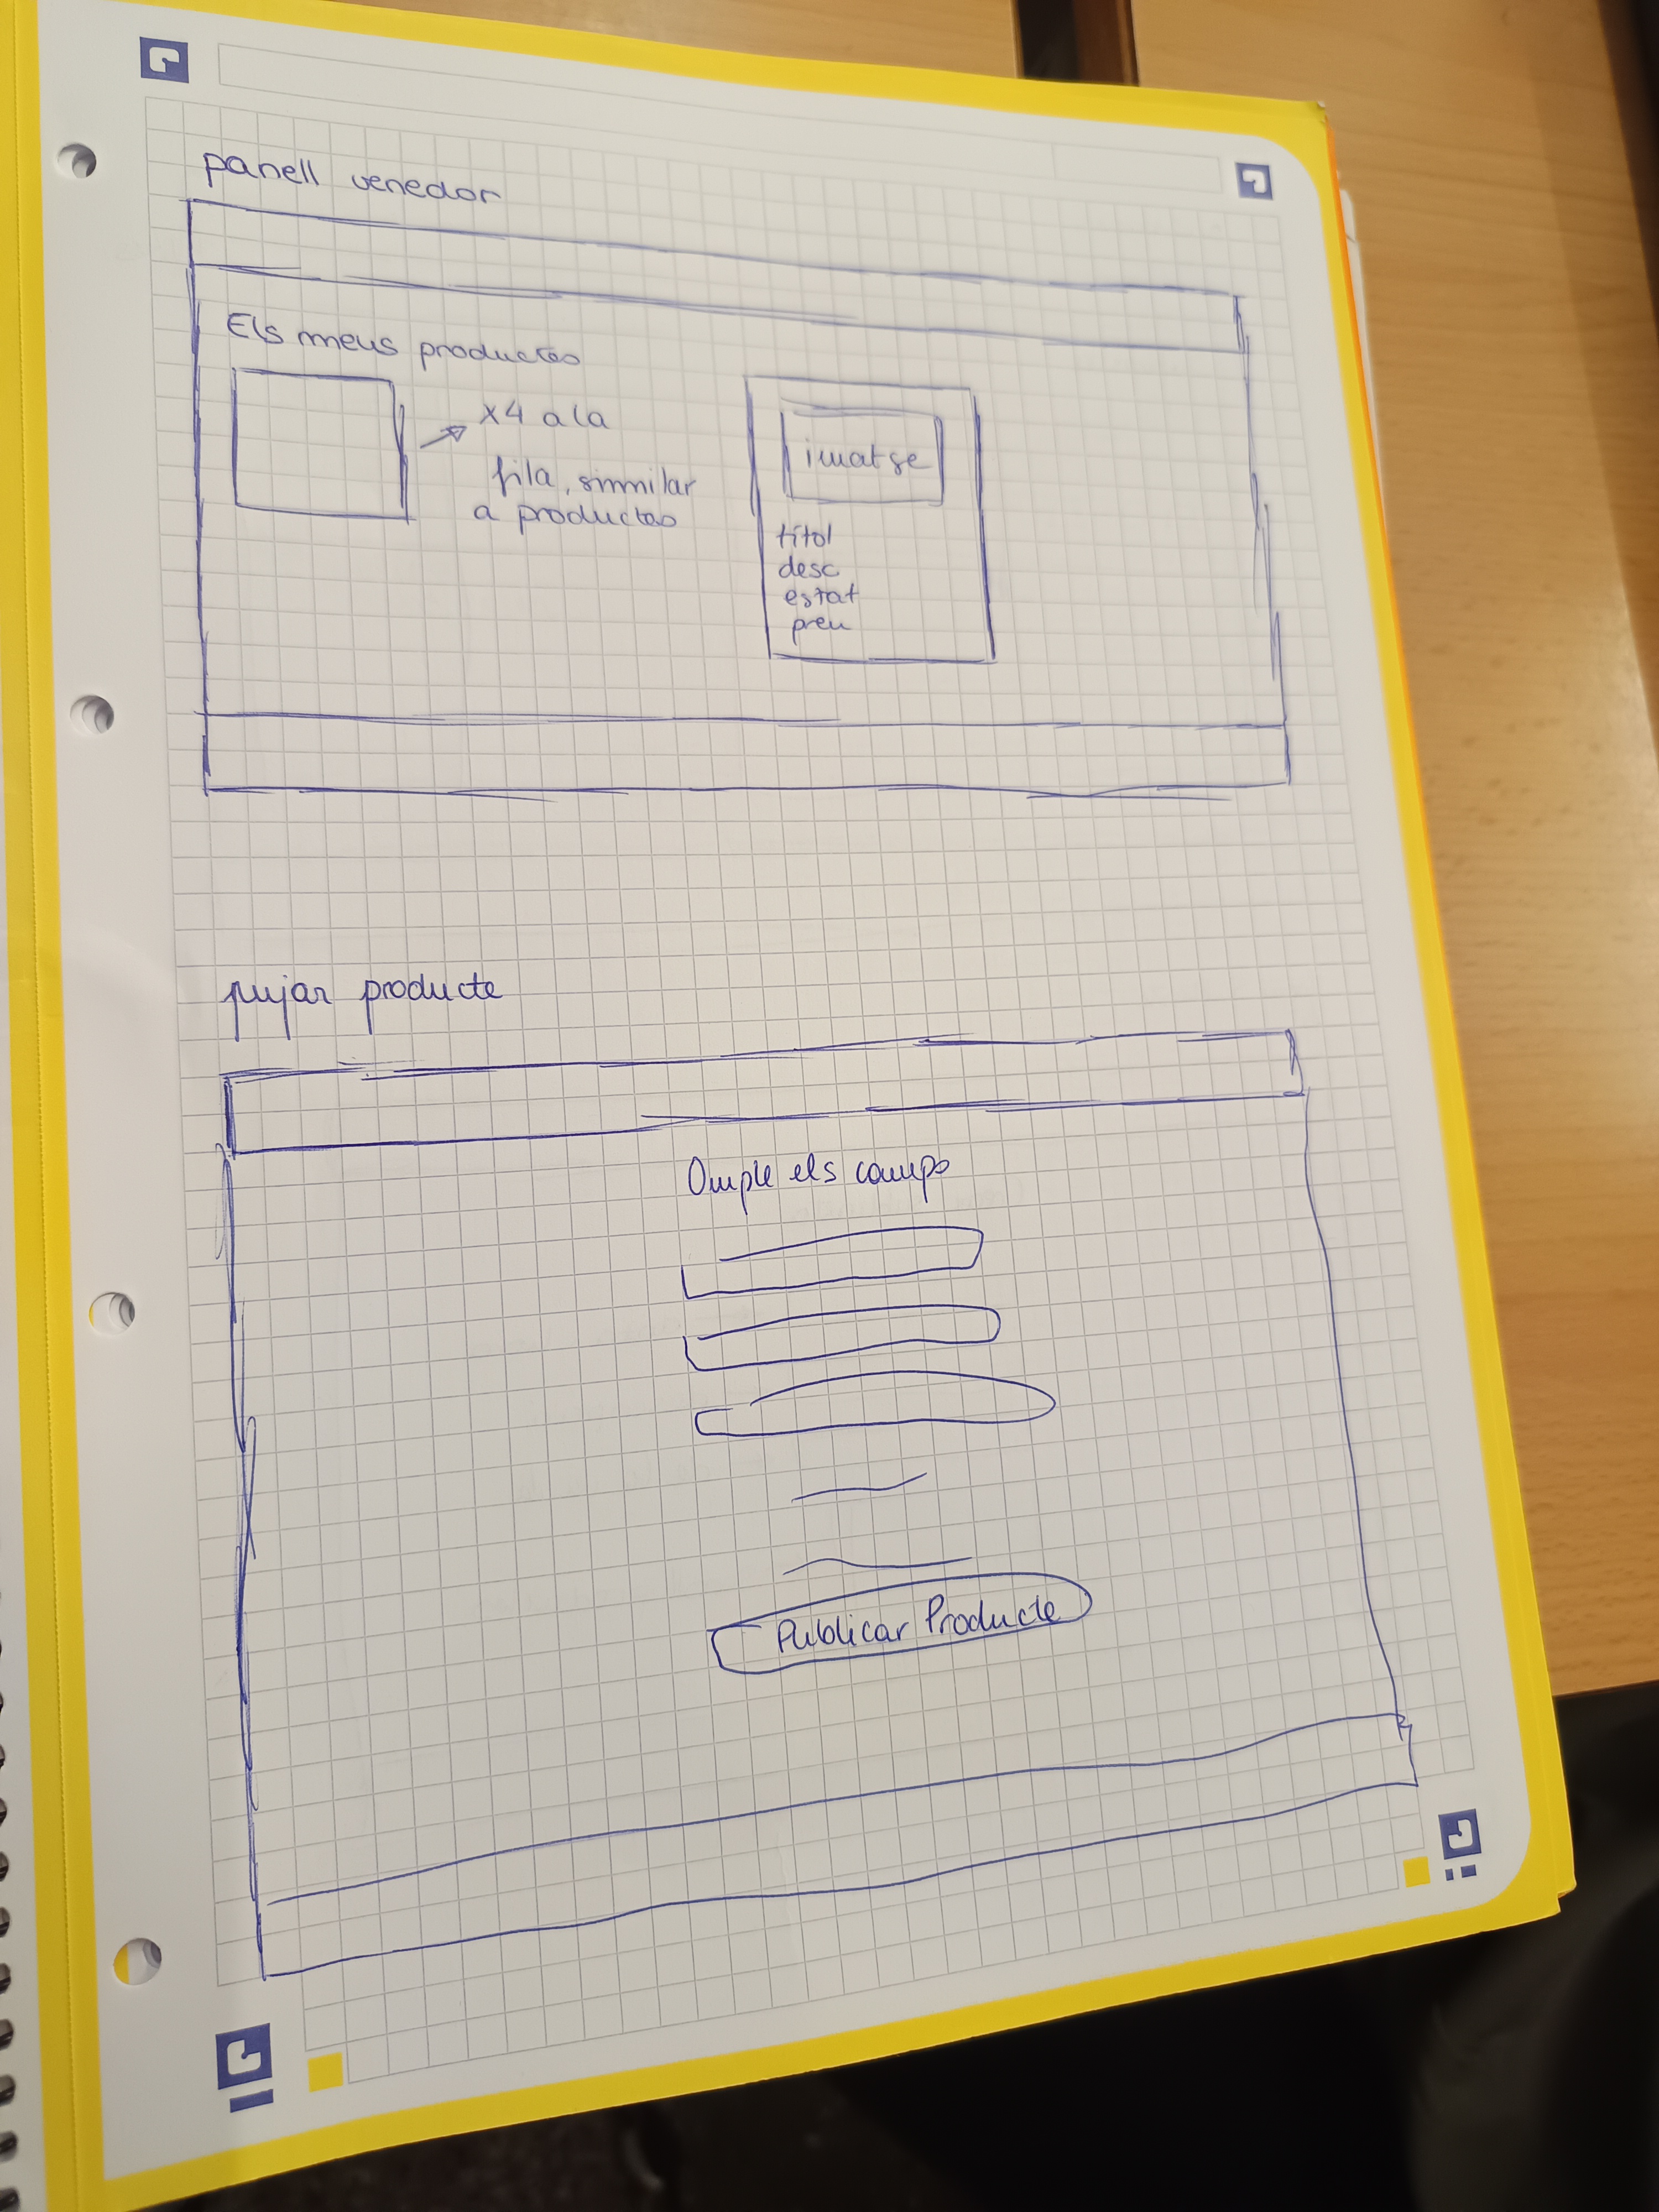 panell venedor
Els meus productes
x4 a la
fila, similar
a productes
imatge
títol
desc
estat
preu
pujar producte
Omple els camps
Publicar Producte